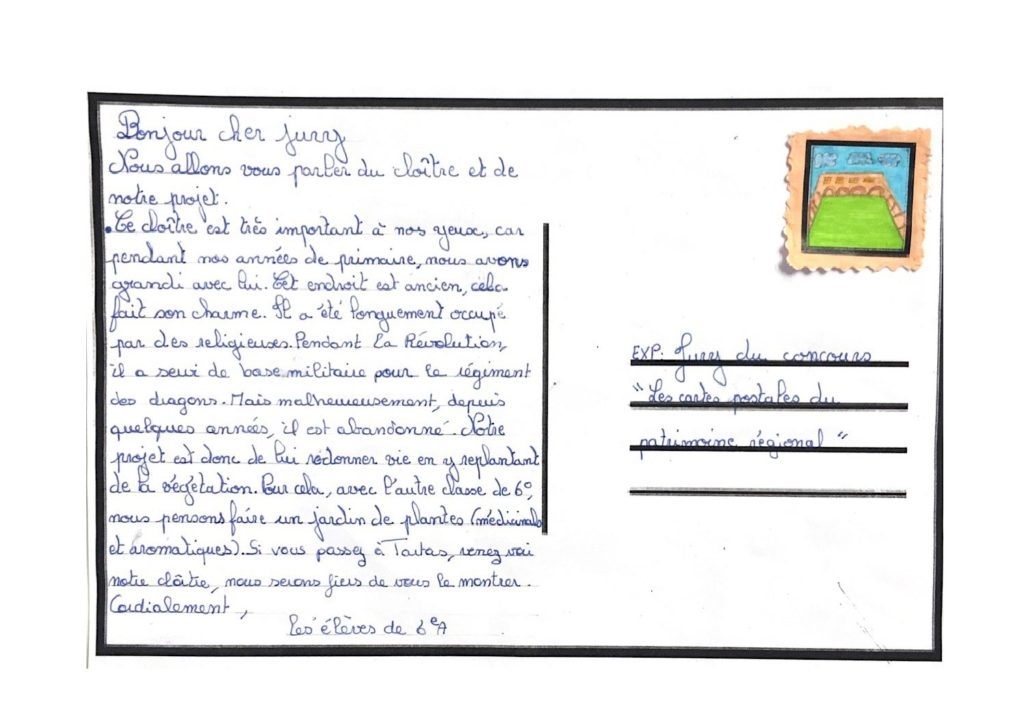 Bonjour cher jury
Nous allons vous parler du cloître et de
notre projet.
. Ce cloître est très important à nos yeux, car
pendant nos années de primaire, nous avons
grandi avec lui. Cet endroit est ancien, cela
fait son charme. Il a été longuement occupé
par des religieuses. Pendant la Révolution,
il a servi de base militaire pour le régiment
des dragons. Mais malheureusement, depuis
quelques années, il est abandonné. Notre
projet est donc de lui redonner vie en y replantant
de la végétation. Pour cela, avec l'autre classe de 6°,
nous pensons faire un jardin de plantes (médicinals
et aromatiques). Si vous passez à Tartas, venez voir
notre cloître, nous serons fiers de vous le montrer.
Cordialement,
les élèves de 6eA
EXP: Jury du concours
"Les cartes postales du
patrimoine régional"